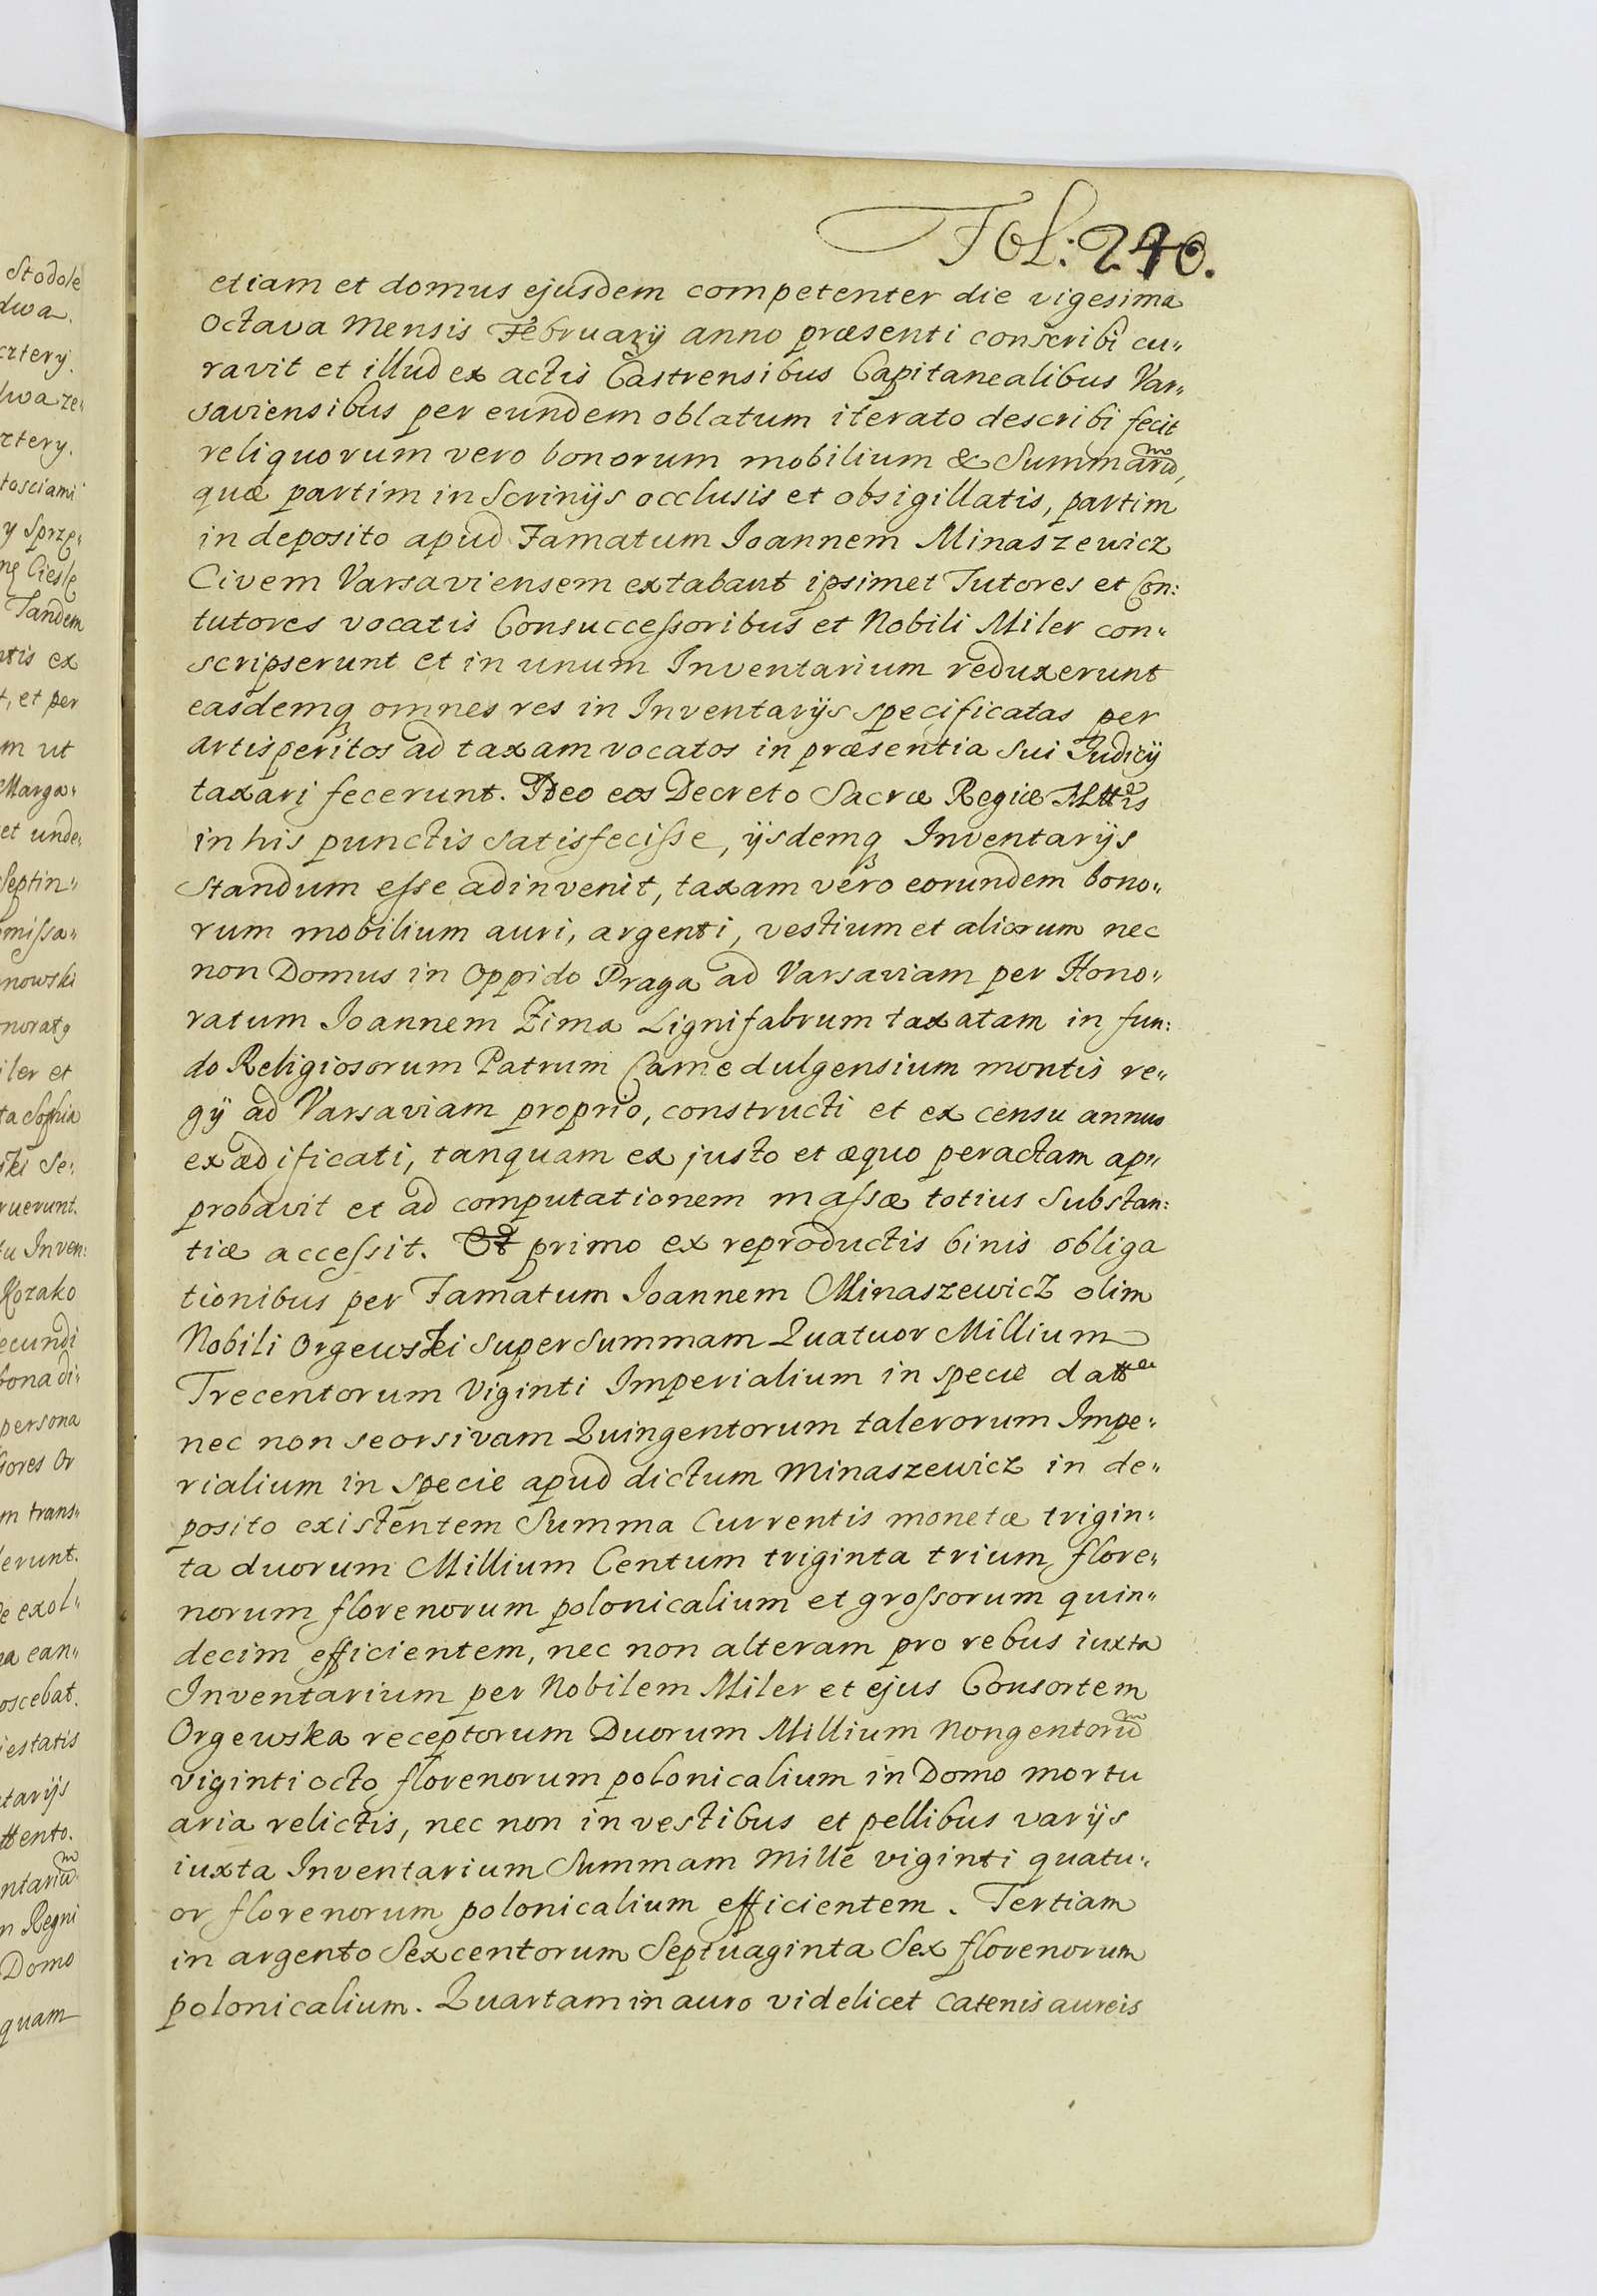 Stodole
dwa.
cztery.
dwa ze„
cztery.
tosciami
y Sprzę„
nę Cieslę
Tandem
ntis ex
t, et per
m ut
Marga„
et unde„
Septin„
missa„
nowski
iler et
ta Sophia
ski Se:
ruerunt.
tu Inven:
Kozako
ecundi
bona di„
persona
sores Or
m trans„
erunt.
e exol„
na ean„
oscebat.
iestatis
ntarijs
ttento.
n Regni
Domo
quam
Fol: 240.
etiam et domus ejusdem competenter die vigesima
octava Mensis Februarij anno præsenti conscribi cu„
ravit et illud ex actis Castrensibus Capitanealibus Var„
saviensibus per eundem oblatum iterato describi fecit
reliquorum vero bonorum mobilium & Summaru^m,
quæ partim in Scrinijs occlusis et obsigillatis, partim
in deposito apud Famatum Joannem Minaszewicz
Civem Varsaviensem extabant ipsimet Tutores et Con:
tutores vocatis Consuccessoribus et Nobili Miler con„
scripserunt et in unum Inventarium reduxerunt
easdemq omnes res in Inventarijs specificatas per
artisperitos ad taxam vocatos in præsentia sui Judicij
taxari fecerunt. Ideo eos Decreto Sacræ Regiæ Mttis
in his punctis satisfecisse, ijsdemq Inventarijs
standum esse adinvenit, taxam vero eorundem bono„
rum mobilium auri, argenti, vestium et aliorum nec
non Domus in Oppido Praga ad Varsaviam per Hono„
ratum Joannem Zima Lignifabrum taxatam in fun:
do Religiosorum Patrum Camedulgensium montis re„
gij ad Varsaviam proprio, constructi et ex censu annuo
exædificati, tanquam ex justo et æquo peractam ap„
probavit et ad computationem massæ totius substan:
tiæ accessit. Et primo ex reproductis binis obliga
tionibus per Famatum Joannem Minaszewicz olim
Nobili Orgewski super Summam Quatuor Millium
Trecentorum Viginti Imperialium in specie datt^
nec non seorsivam Quingentorum talerorum Impe„
rialium in specie apud dictum Minaszewicz in de„
posito existentem Summa Currentis monetæ trigin„
ta duorum Millium Centum triginta trium flore„
norum florenorum polonicalium et grossorum quin„
decim efficientem, nec non alteram pro rebus iuxta
Inventarium per Nobilem Miler et ejus Consortem
Orgewska receptorum Duorum Millium Nongentoru^m
viginti octo florenorum polonicalium in Domo mortu
aria relictis, nec non in vestibus et pellibus varijs
iuxta Inventarium Summam Mille viginti quatu„
or florenorum polonicalium efficientem. Tertiam
in argento Sexcentorum Septuaginta Sex florenorum
polonicalium. Quartam in auro videlicet Catenis aureis